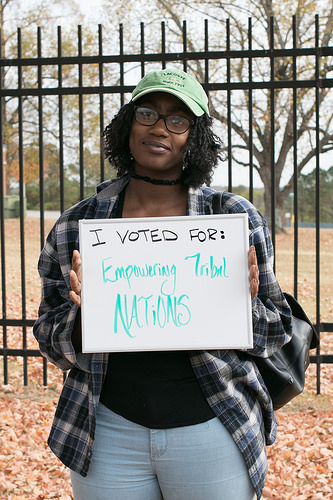 LACOSTE
I VOTED FOR:
Empowering Tribal
NATIONS